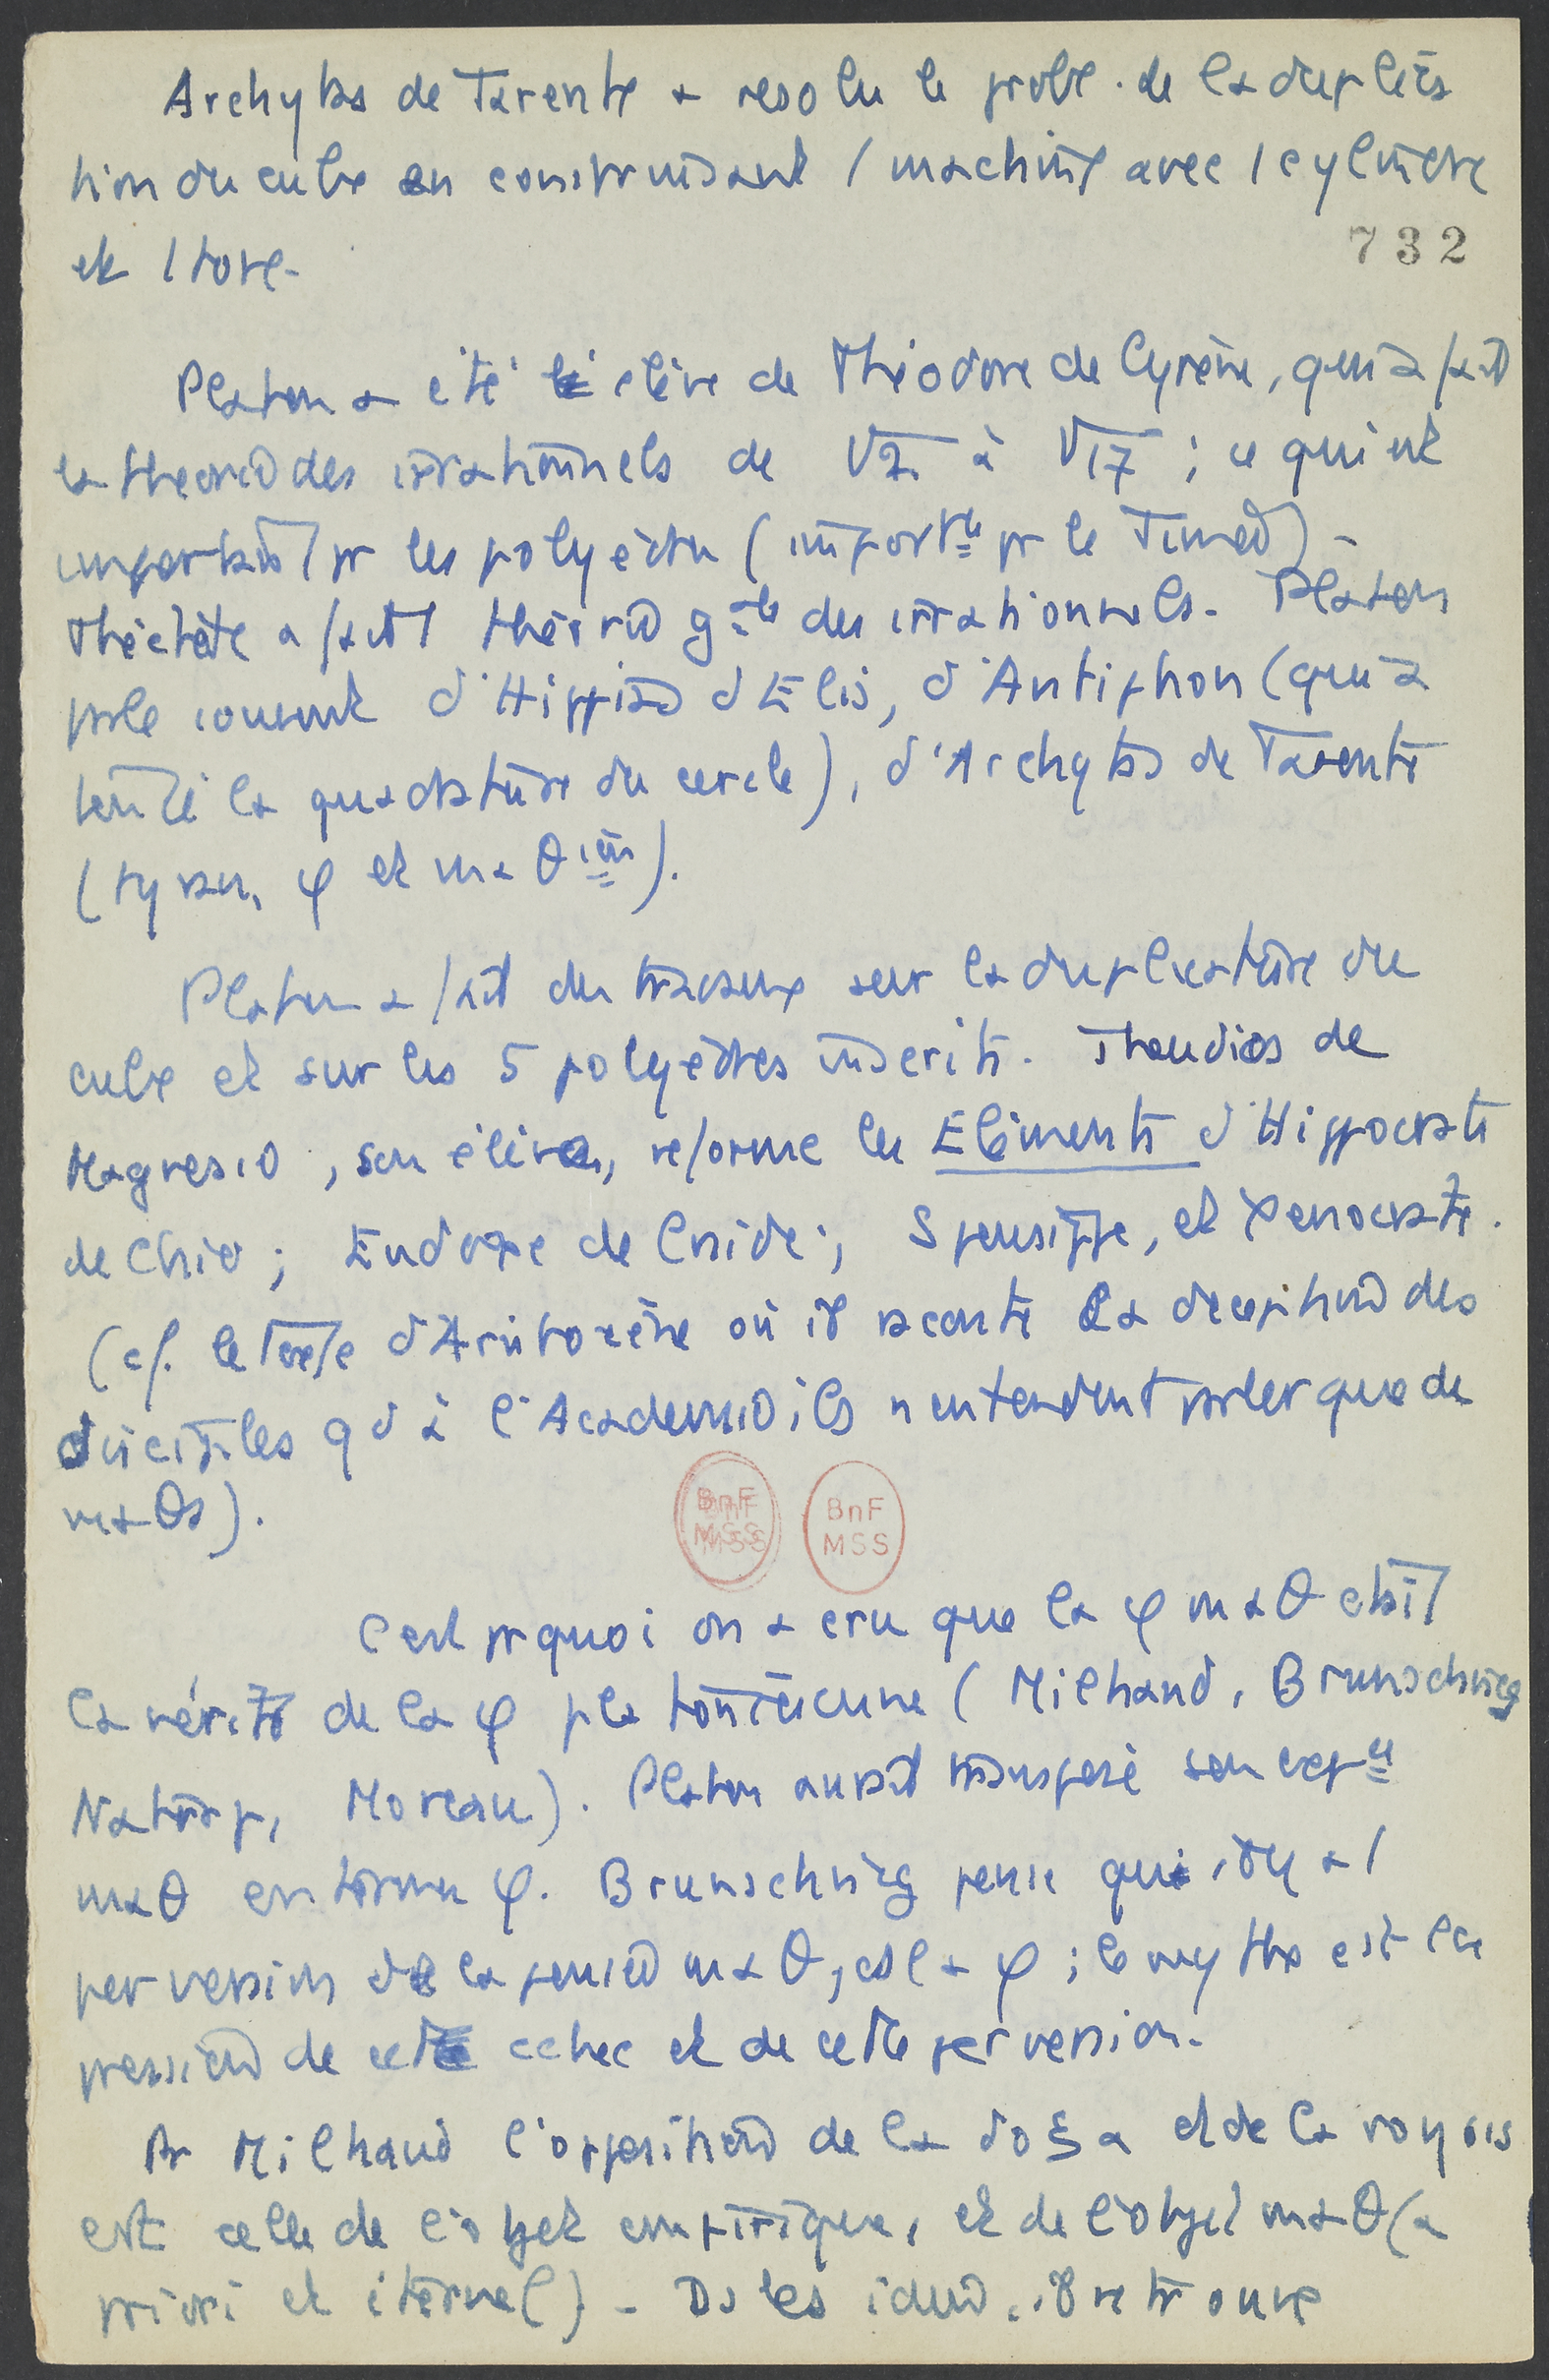 Archytas de Tarente a resolu le probl. de la duplica
tion du cube en construisant 1 machine avec 1 cylindre
et 1 tore.
732
Platon a été élève de Théodore de Cyrène, qui a fait
la théorie des irrationnels de √2 à √17 ; ce qui est
important pr les polyèdres (import^te pr le Timée) -
Théétète a fait 1 théorie g^ale des irrationnels. Platon
parle souvent d'Hippias d'Elis, d'Antiphon (qui a
tenté la quadrature du cercle), d'Archytas de Tarente
(tyran, φ et maθ^ien).
Platon a fait des travaux sur la duplicature du
cube et sur les 5 polyèdres inscrits. Theudios de
Magnésie, son élève, reforme les Eléments d'Hippocrate
de Chio ; Eudoxe de Cnide ; Speusippe, et Xénocrate.
(cf. le texte d'Aristoxène où il raconte la déception des
disciples qd à l'Académie ils n'entendent parler que de
maθs).
BnF
MSS
BnF
MSS
C'est prquoi on a cru que la φ maθ était
la vérité de la φ platonicienne (Milhaud, Brunschvicg
Natorp, Moreau). Platon aurait transposé son exp^ce
maθ en termes φ. Brunschvicg pense qu'il y a 1
perversion de la pensée maθ, ds la φ ; le mythe est l'ex
pression de cet échec et de cette perversion.
Pr Milhaud l'opposition de la doξa et de la noηsis
est celle de l'objet empirique, et de l'objet maθ (a
priori et éternel) - Ds les idées, il retrouve